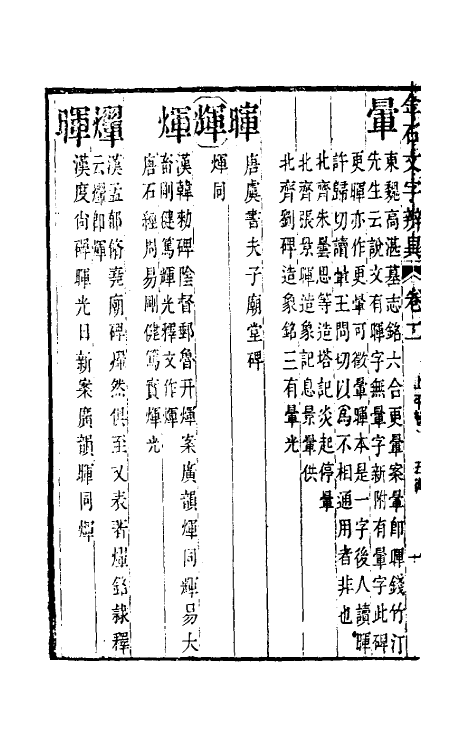 金石文字辨異 卷二 上平聲 五微
暈
東魏高湛墓志銘六合更暈案暈即暉錢竹汀
先生云說文有暉字無暈字新附有暈字此碑
更暉亦作更暈可徵暈暉本是一字後人讀暉
許歸切讀暈王問切以爲不相通用者非也
北齊朱曇思等造塔記炎起停暈
北齊張景暉造象記息景暈供
北齊劉碑造象銘三有暈光
暉
唐虞書夫子廟堂碑
輝
煇同
煇
漢韓勑碑陰督郵魯開煇案廣韻煇同輝易大
畜剛健篤輝光釋文作煇
唐石經周易剛健篤實煇光
漢孟郁脩堯廟碑燿然俱至又表著燿銘隸釋
云燿即輝
暉
漢度尚碑暉光日新案廣韻暉同煇